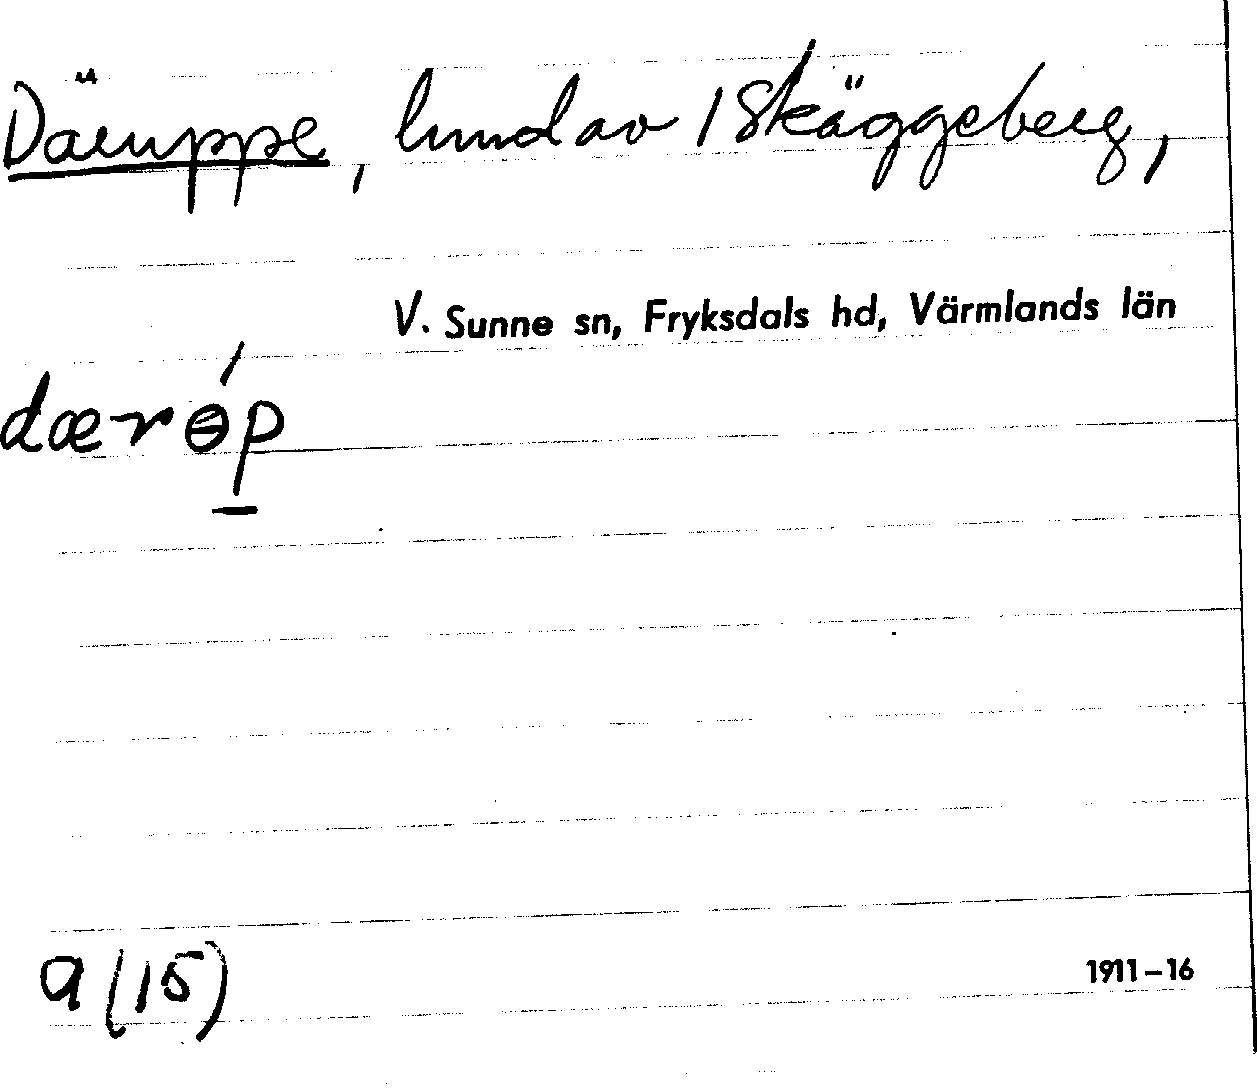 Däruppe, lund av 1 Skäggeberg,
V. Sunne sn, Fryksdals hd, Värmlands län
dærɵ́p
a (15)
1911–16